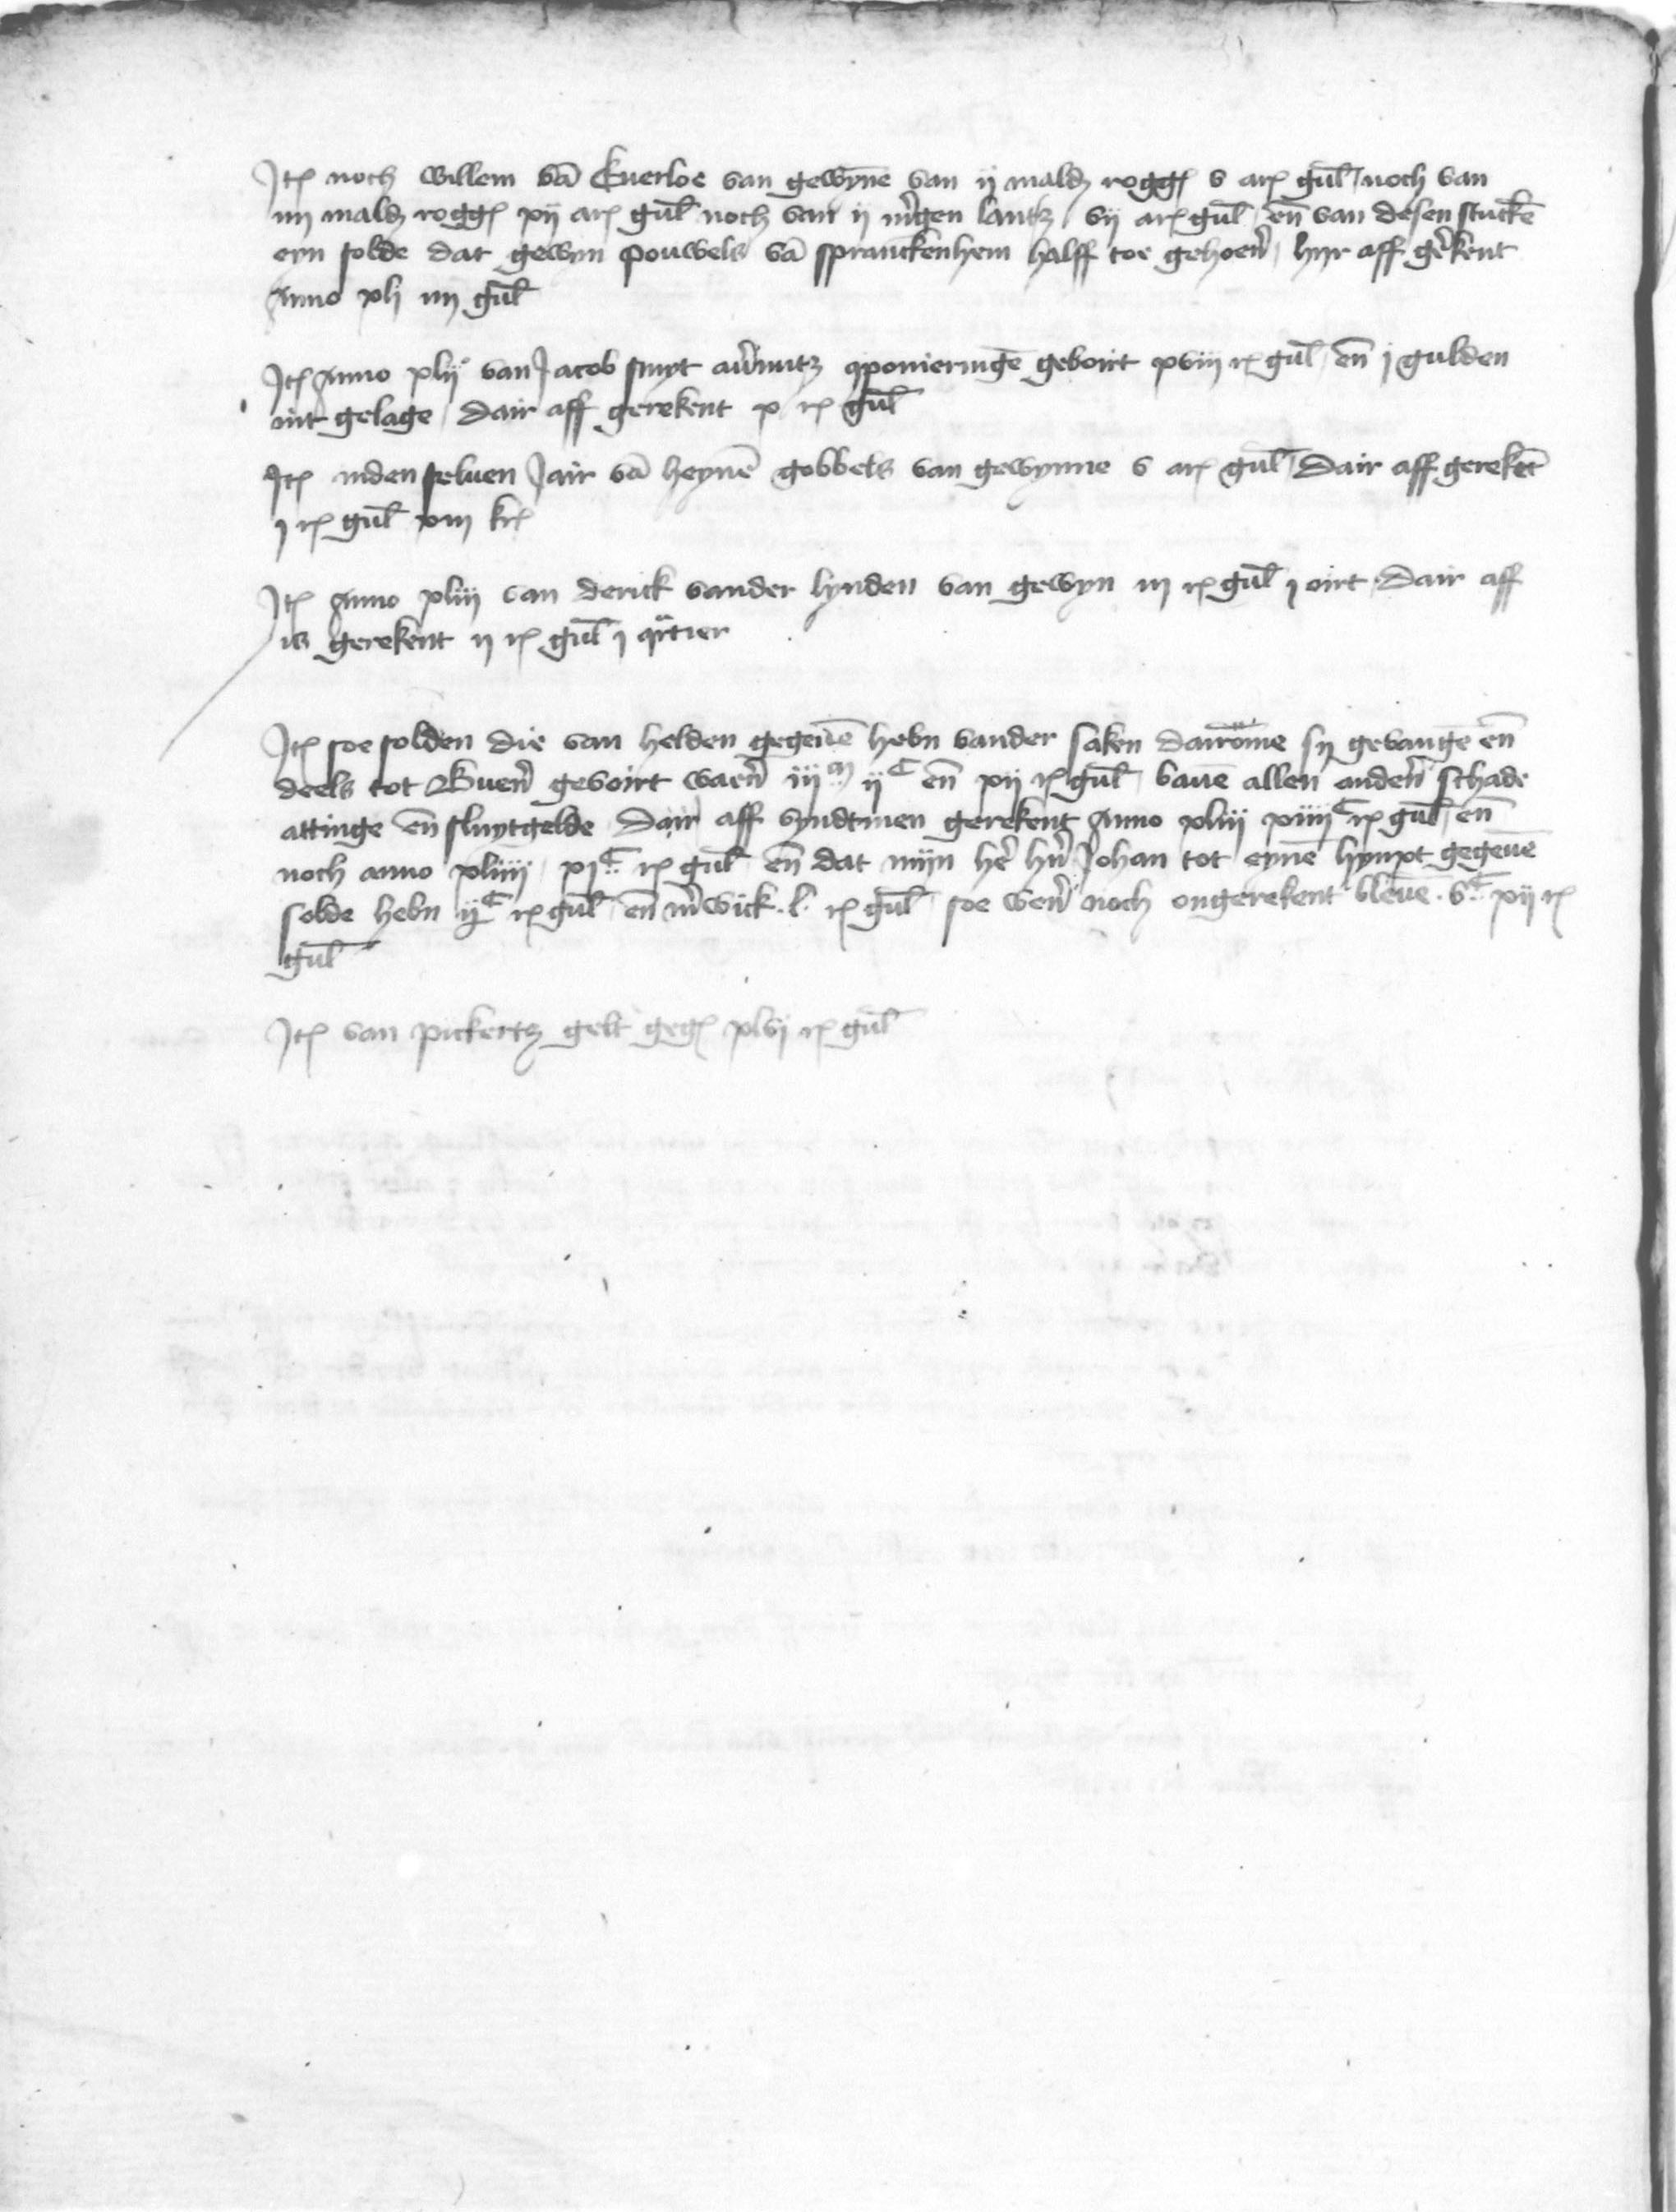 Itē noch willem vā Euerloe van gewȳne van ij mald rogg v arē gul̄ noch van
iiij mald rogg xij arē gul̄ noch van ij m̄gen lantz vij arē gul̄ en̄ van desen stuckē
eyn solde dat gewyn pouwels vā spranckenhem halff toe gehoer̄ hyr aff ger̄kent
Anno xlj iiij gul̄
Itē Anno xlij van Jacob smyt componieringē geboirt xviij rē gul̄ en̄ j gulden
int gelage dair aff gerekent x rē gul̄
Itē inden seluen Jair vā heynē gobbels van gewynne v arē gul̄ dair aff gerekēt
j rē gul̄ xiij kr̄
Itē Anno xliij van derick vander lynden van gewyn iij rē gul̄ j oirt dair aff
is gerekent ij rē gul̄ j qrtier
Itē soe solden die van helden gegeuē hebn vander saken dairōme sy gevangē en̄
deels tot Buer̄ gevoirt waer̄ iijᵐ ijᶜ en̄ xij rē gul̄ bauē allen ander̄ schade
attinge en̄ sluytgelde dair aff vyndtmen gerekent Anno xliij xiiijᶜ rē gul̄ en̄
noch anno xliiij xjᶜ rē gul̄ en̄ dat mijn her̄ hr̄ Johan tot eynē hynxt gegeuē
solde hebn ijᶜ rē gul̄ en̄ m̄wick .l. rē gul̄ soe wer̄ noch ongerekent bleuē .vᶜ. xij rē
gul̄
Itē van pickertz gelt geg xlvj rē gul̄